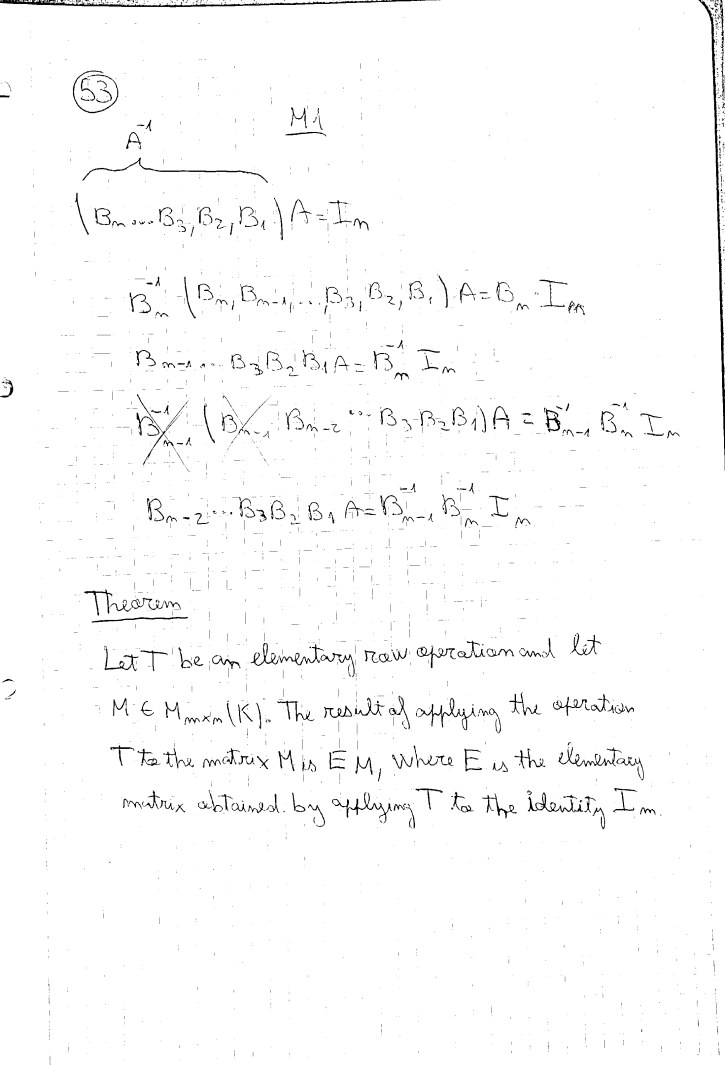 53
M1
A^{-1}
(B_n ... B_3, B_2, B_1) A = I_n
B_n^{-1} (B_n, B_{n-1}, ..., B_3, B_2, B_1) A = B_n · I_n
B_{n-1} ... B_3 B_2 B_1 A = B_n^{-1} I_n
B_{n-1}^{-1} (B_{n-1} B_{n-2} ... B_3 B_2 B_1) A = B_{n-1}^{-1} B_n^{-1} I_n
B_{n-2} ... B_3 B_2 B_1 A = B_{n-1}^{-1} B_n^{-1} I_n
Theorem
Let T be an elementary row operation and let
M ∈ M_{m×n}(K). The result of applying the operation
T to the matrix M is EM, where E is the elementary
matrix obtained by applying T to the identity I_m.